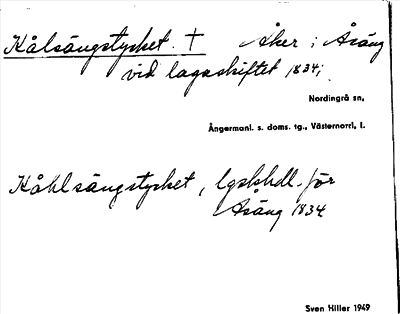 Kålsängstycket. † Åker i Åsäng
vid lagaskiftet 1834;
Nordingrå sn,
Ångermanl. s. doms. tg., Västernorrl, l.
Kåhlsängstycket, lgskhdl. för
Åsäng 1834
Sven Hiller 1949